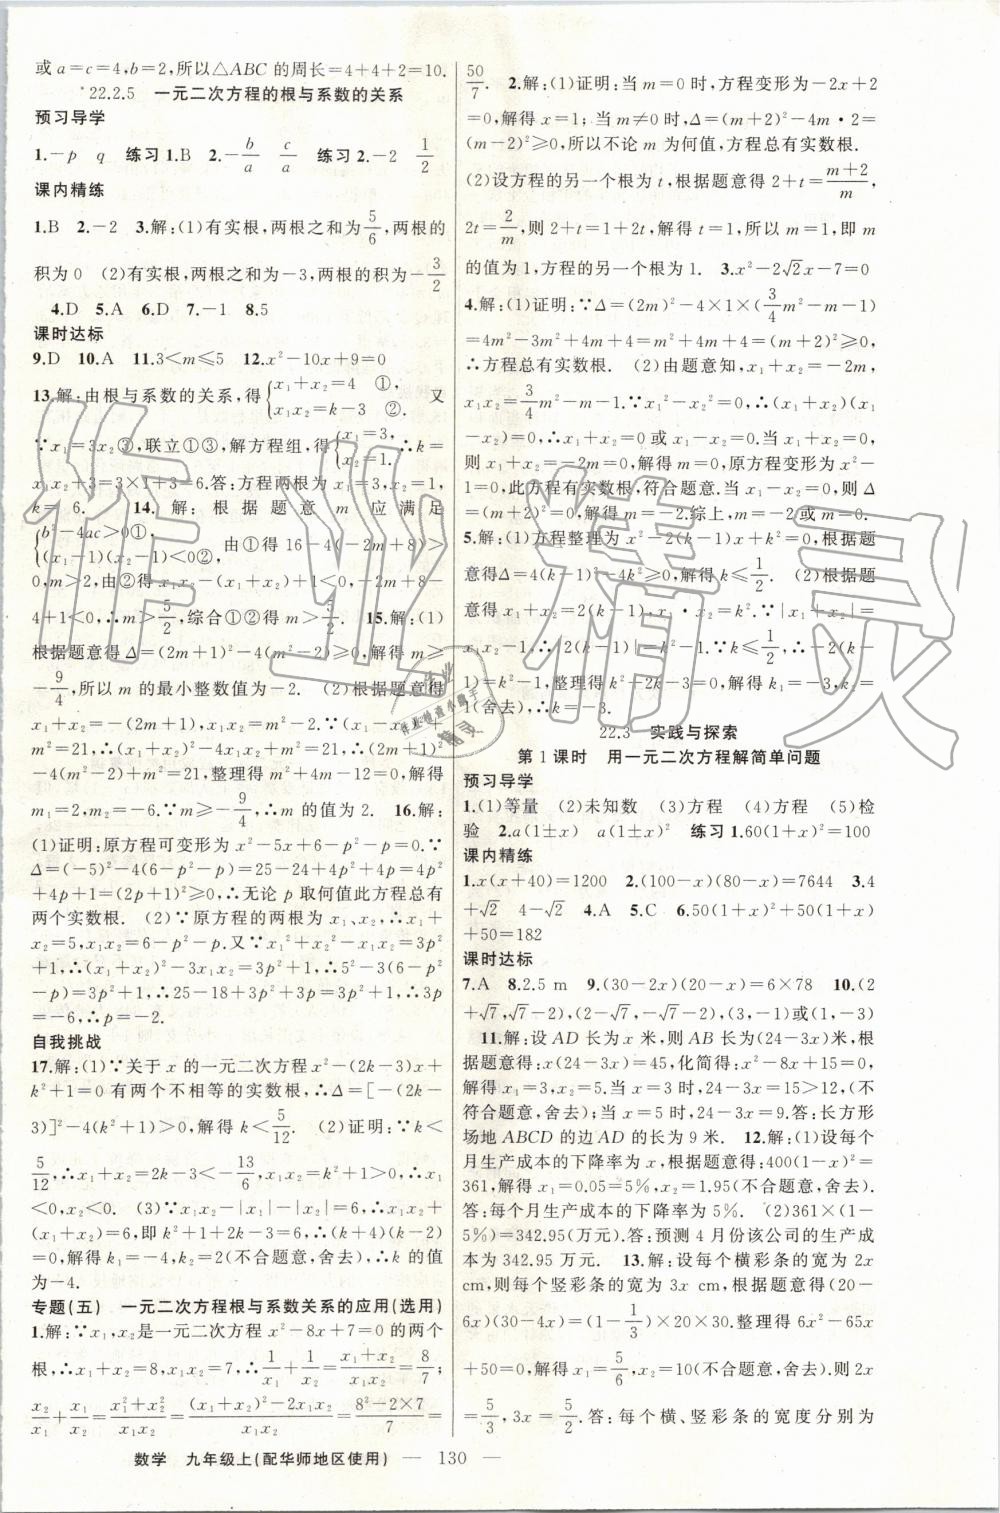 或a=c=4,b=2,所以△ABC的周长=4+4+2=10.
22.2.5 一元二次方程的根与系数的关系
预习导学
1.-p q 练习1.B 2.-b/a c/a 练习2.-2 1/2
课内精练
1.B 2.-2 3.解:(1)有实根,两根之和为5/6,两根的
积为0 (2)有实根,两根之和为-3,两根的积为-3/2
4.D 5.A 6.D 7.-1 8.5
课时达标
9.D 10.A 11.3<m≤5 12.x²-10x+9=0
13.解:由根与系数的关系,得{x₁+x₂=4 ①, x₁x₂=k-3 ②. 又
∵x₁=3x₂③,联立①③,解方程组,得{x₁=3, x₂=1. ∴k=
x₁x₂+3=3×1+3=6.答:方程两根为x₁=3,x₂=1,
k=6. 14.解:根据题意m应满足
{b²-4ac>0①, (x₁-1)(x₂-1)<0②, 由①得16-4(-2m+8)>
0,m>2,由②得x₁x₂-(x₁+x₂)+1<0,-2m+8-
4+1<0,∴m>5/2,综合①②得m>5/2. 15.解:(1)
根据题意得Δ=(2m+1)²-4(m²-2)≥0,解得m≥
-9/4,所以m的最小整数值为-2. (2)根据题意得
x₁+x₂=-(2m+1),x₁x₂=m²-2.∵(x₁-x₂)²+
m²=21,∴(x₁+x₂)²-4x₁x₂+m²=21,∴(2m+1)²-4(m²-2)
+m²=21,整理得m²+4m-12=0,解得
m₁=2,m₂=-6.∵m≥-9/4,∴m的值为2. 16.解:
(1)证明:原方程可变形为x²-5x+6-p²-p=0.∵
Δ=(-5)²-4(6-p²-p)=25-24+4p²+4p=4p²+
4p+1=(2p+1)²≥0,∴无论p取何值此方程总有
两个实数根. (2)∵原方程的两根为x₁、x₂,∴x₁+
x₂=5,x₁x₂=6-p²-p.又∵x₁²+x₂²-x₁x₂=3p²
+1,∴(x₁+x₂)²-3x₁x₂=3p²+1,∴5²-3(6-p²-
p)=3p²+1,∴25-18+3p²+3p=3p²+1,∴3p=
-6,∴p=-2.
自我挑战
17.解:(1)∵关于x的一元二次方程x²-(2k-3)x+
k²+1=0有两个不相等的实数根,∴Δ=[-(2k-
3)]²-4(k²+1)>0,解得k<5/12. (2)证明:∵k<
5/12,∴x₁+x₂=2k-3<-13/6,又∵x₁x₂=k²+1>0,∴x₁
<0,x₂<0. (3)∵x₁x₂-|x₁|-|x₂|=6,∴x₁x₂+
(x₁+x₂)=6,即k²+1+2k-3=6,∴(k+4)(k-2)
=0,解得k₁=-4,k₂=2(不合题意,舍去),∴k的值
为-4.
专题(五) 一元二次方程根与系数关系的应用(选用)
1.解:∵x₁,x₂是一元二次方程x²-8x+7=0的两个
根,∴x₁+x₂=8,x₁x₂=7,∴1/x₁+1/x₂=(x₁+x₂)/(x₁x₂)=8/7;
x₂/x₁+x₁/x₂=(x₁²+x₂²)/(x₁x₂)=((x₁+x₂)²-2x₁x₂)/(x₁x₂)=(8²-2×7)/7=
50/7. 2.解:(1)证明:当m=0时,方程变形为-2x+2
=0,解得x=1;当m≠0时,Δ=(m+2)²-4m·2=
(m-2)²≥0,所以不论m为何值,方程总有实数根.
(2)设方程的另一个根为t,根据题意得2+t=(m+2)/m,
2t=2/m,则2+t=1+2t,解得t=1,所以m=1,即m
的值为1,方程的另一个根为1. 3.x²-2√2x-7=0
4.解:(1)证明:∵Δ=(2m)²-4×1×(3/4m²-m-1)
=4m²-3m²+4m+4=m²+4m+4=(m+2)²≥0,
∴方程总有实数根. (2)由题意知,x₁+x₂=-2m,
x₁x₂=3/4m²-m-1.∵x₁²-x₂²=0,∴(x₁+x₂)(x₁
-x₂)=0,∴x₁+x₂=0或x₁-x₂=0.当x₁+x₂=0,
则x₁+x₂=-2m=0,解得m=0,原方程变形为x²-
1=0,此方程有实数根,符合题意.当x₁-x₂=0,则Δ
=(m+2)²=0,解得m=-2.综上,m=-2或m=0.
5.解:(1)方程整理为x²-2(k-1)x+k²=0,根据题
意得Δ=4(k-1)²-4k²≥0,解得k≤1/2. (2)根据题
意得x₁+x₂=2(k-1),x₁·x₂=k².∵|x₁+x₂|=
x₁x₂-1,∴|2(k-1)|=k²-1.∵k≤1/2,∴-2(k-
1)=k²-1,整理得k²+2k-3=0,解得k₁=-3,k₂=
1(舍去),∴k=-3.
22.3 实践与探索
第1课时 用一元二次方程解简单问题
预习导学
1.(1)等量 (2)未知数 (3)方程 (4)方程 (5)检
验 2.a(1±x) a(1±x)² 练习1.60(1+x)²=100
课内精练
1.x(x+40)=1200 2.(100-x)(80-x)=7644 3.4
+√2 4-√2 4.A 5.C 6.50(1+x)²+50(1+x)
+50=182
课时达标
7.A 8.2.5 m 9.(30-2x)(20-x)=6×78 10.(2
+√7,√7-2),(2-√7,-√7-2),(3,-1)或(1,-3)
11.解:设AD长为x米,则AB长为(24-3x)米,根
据题意得:x(24-3x)=45,化简得:x²-8x+15=0,
解得x₁=3,x₂=5.当x=3时,24-3x=15>12,(不
符合题意,舍去);当x=5时,24-3x=9.答:长方形
场地ABCD的边AD的长为9米. 12.解:(1)设每个
月生产成本的下降率为x,根据题意得:400(1-x)²=
361,解得x₁=0.05=5%,x₂=1.95(不合题意,舍去).
答:每个月生产成本的下降率为5%. (2)361×(1-
5%)=342.95(万元).答:预测4月份该公司的生产成
本为342.95万元. 13.解:设每个横彩条的宽为2x
cm,则每个竖彩条的宽为3x cm,根据题意得(20-
6x)(30-4x)=(1-1/3)×20×30.整理得6x²-65x
+50=0,解得x₁=5/6,x₂=10(不合题意,舍去).则2x
=5/3,3x=5/2.答:每个横、竖彩条的宽度分别为
数学 九年级上(配华师地区使用) — 130 —
作业精灵